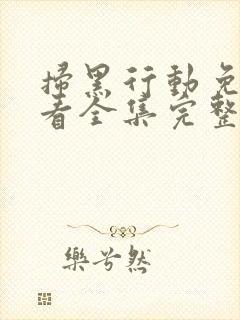 掃黑行動免
看全集完整
樂兮然